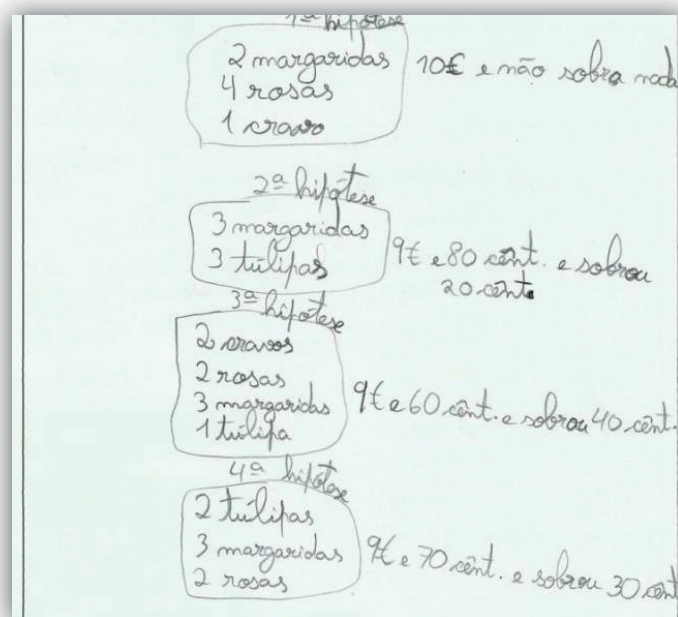 1ª hipótese
2 margaridas
4 rosas
1 cravo
10€ e não sobra nada
2ª hipótese
3 margaridas
3 túlipas
9€ e 80 cênt. e sobrou
20 cênt.
3ª hipótese
2 cravos
2 rosas
3 margaridas
1 túlipa
9€ e 60 cênt. e sobrou 40 cênt.
4ª hipótese
2 túlipas
3 margaridas
2 rosas
9€ e 70 cênt. e sobrou 30 cênt